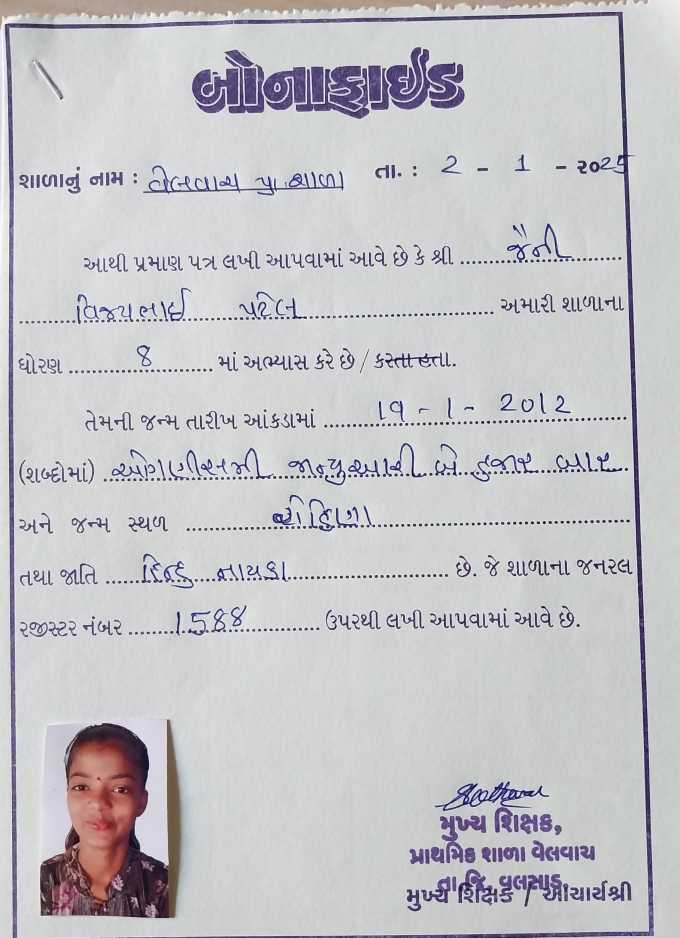 બોનાફાઈડ
શાળાનું નામ : વેલવાચ પ્રા.શાળા તા. : 2 - 1 - ૨૦25
આથી પ્રમાણ પત્ર લખી આપવામાં આવે છે કે શ્રી જૈની
વિજયભાઈ પટેલ અમારી શાળાના
ધોરણ 8 માં અભ્યાસ કરે છે / કરતા હતા.
તેમની જન્મ તારીખ આંકડામાં 19 - 1 - 2012
(શબ્દોમાં) ઓગણીસમી જાન્યુઆરી બે હજાર બાર
અને જન્મ સ્થળ
તથા જાતિ હિન્દુ નાયકા છે. જે શાળાના જનરલ
રજીસ્ટર નંબર 1588 ઉપરથી લખી આપવામાં આવે છે.
મુખ્ય શિક્ષક,
પ્રાથમિક શાળા વેલવાચ
તા.જિ. વલસાડ.
મુખ્ય શિક્ષક / આચાર્યશ્રી